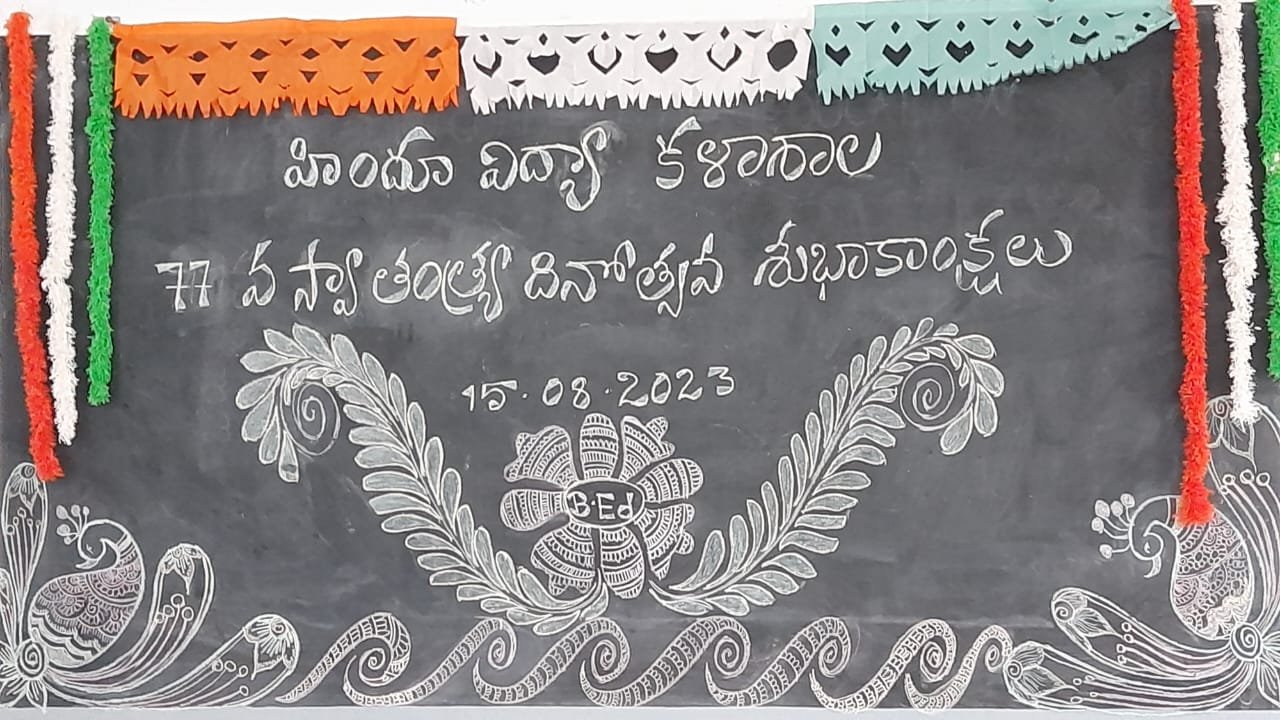 హిందూ విద్యా కళాశాల
77 వ స్వాతంత్ర్య దినోత్సవ శుభాకాంక్షలు
15.08.2023
B.Ed